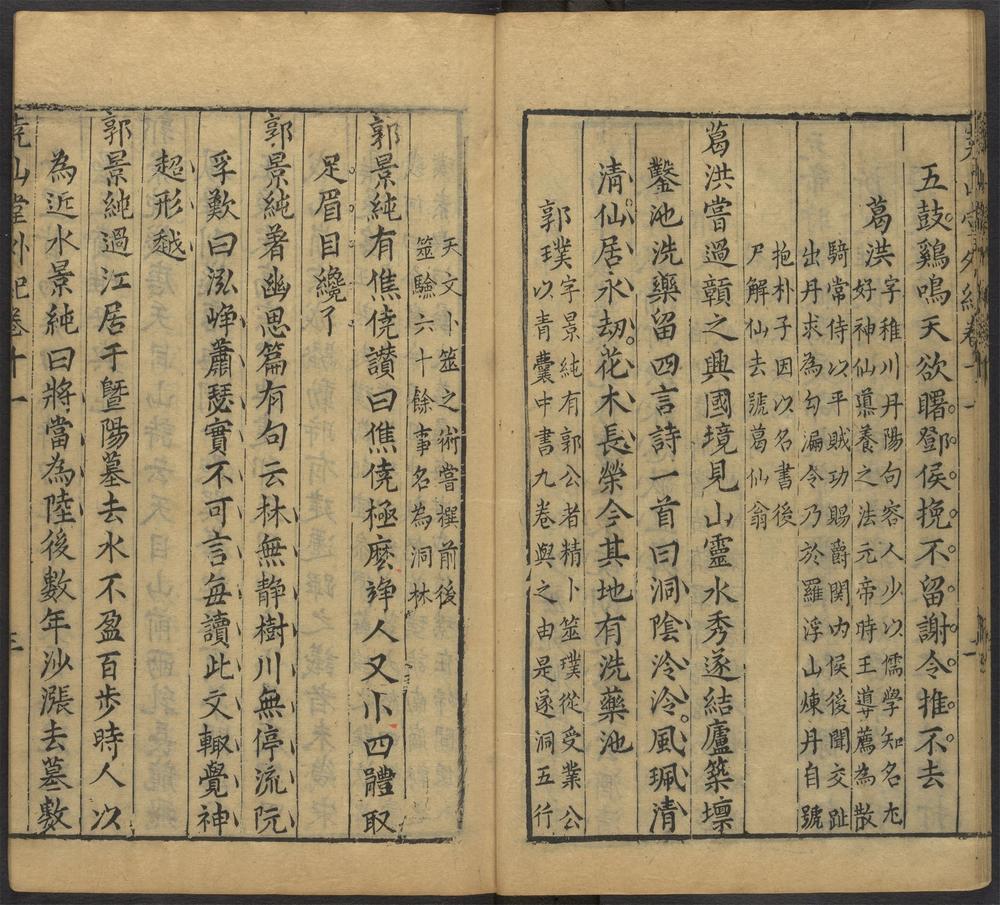 五鼓鷄鳴天欲曙鄧侯挽不留謝令推不去
葛洪字稚川丹陽句容人少以儒學知名尤
好神仙導養之法元帝時王導薦為散
騎常侍以平賊功賜爵関内侯後聞交趾
出丹求為勾漏令乃於羅浮山煉丹自號
抱朴子因以名書後
尸解仙去號葛仙翁
葛洪嘗過贛之興國境見山靈水秀遂結廬築壇
鑿池洗藥留四言詩一首曰洞陰泠泠風珮清
清仙居永劫花木長榮今其地有洗藥池
郭璞字景純有郭公者精卜筮璞從受業公
以青囊中書九卷與之由是遂洞五行
天文卜筮之術嘗撰前後
筮驗六十餘事名為洞林
郭景純有僬僥讃曰僬僥極麽竫人又小四體取
足眉目纔了
郭景純著幽思篇有句云林無静樹川無停流阮
孚歎曰泓崢蕭瑟實不可言每讀此文輙覺神
超形越
郭景純過江居于暨陽墓去水不盈百步時人以
為近水景純曰將當為陸後數年沙漲去墓數
堯山堂外紀卷十一